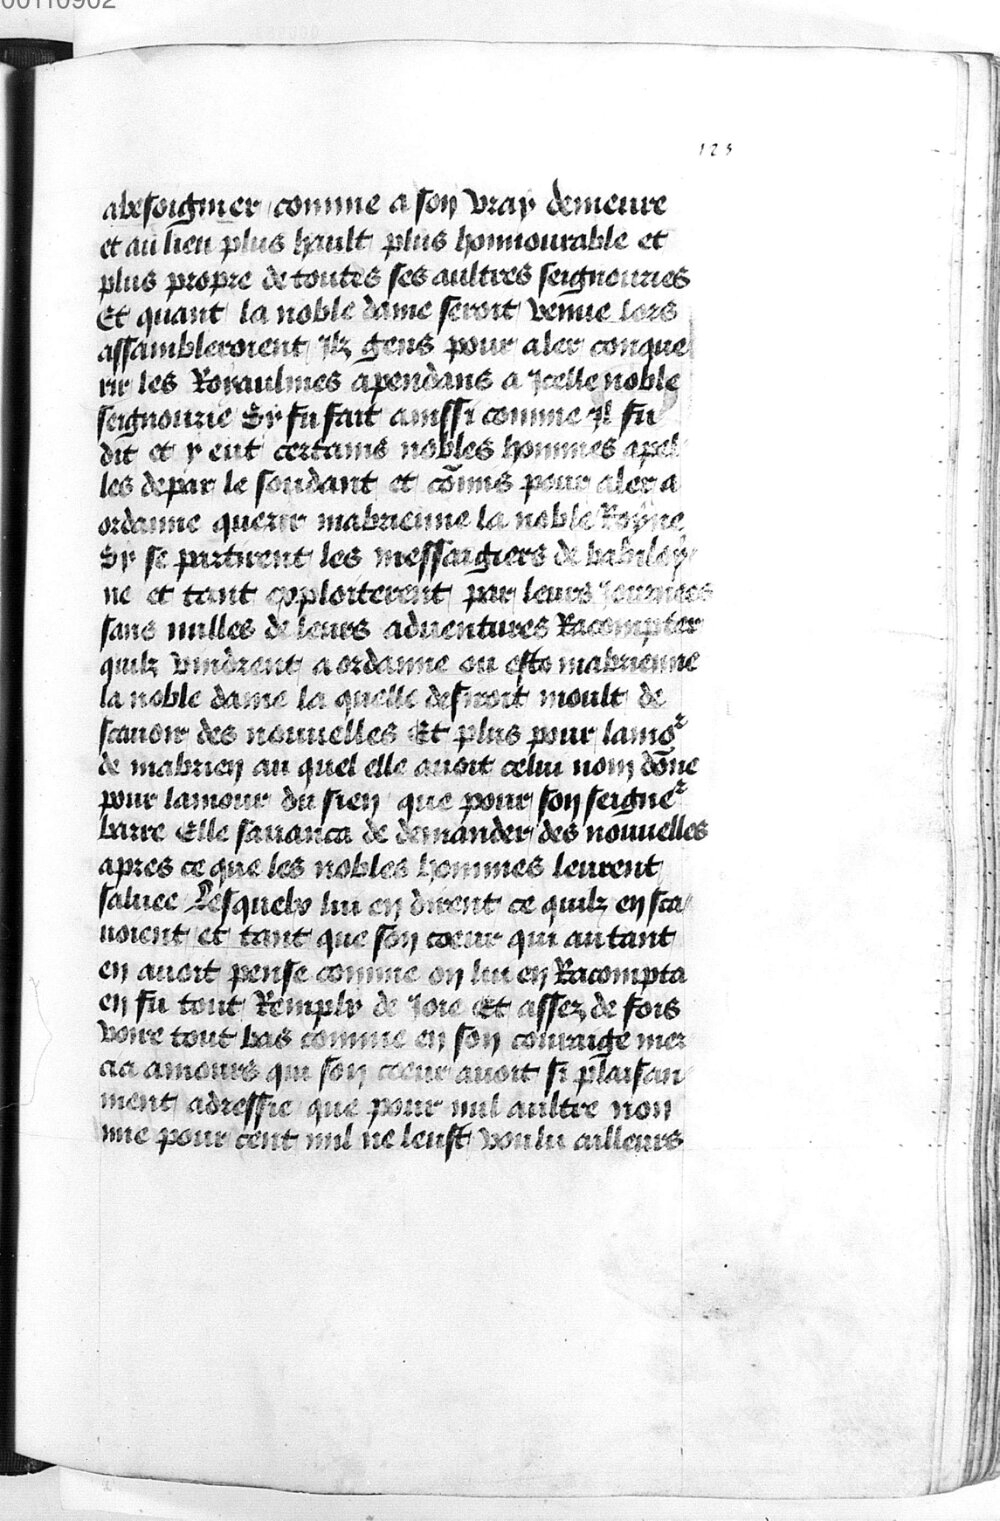 00110902
125
abesoignier comme a son vray demeure
et au lieu plus hault plus honnourable et
plus propre de toutes ses aultres seignouries
Et quant la noble dame seroit venue lors
assambleroient Ilz gens pour aler conque
rir les Royaulmes apendans a Icelle noble
seignourie Sy fu fait ainssi comme Il fu
dit et y eut certains nobles hommes apel
les depar le soudant et cōmis pour aler a
ordanne querir mabrienne la noble Royne
Sy se partirent les messaigiers de babiloy
ne et tant exploiterent par leurs Journees
sans nulles de leurs adventures Racompter
quilz vindrent a ordanne ou esto mabrienne
la noble dame la quelle desiroit moult de
scauoir des nouuelles Et plus pour lamoʳ
de mabrien au quel elle auoit celui nom dōne
pour lamour du sien que pour son seigneʳ
barre Elle sauanca de demander des nouuelles
apres ce que les nobles hommes leurent
saluee Lesquelx lui en dirent ce quilz en sca
uoient et tant que son coeur qui autant
en auoit pense comme on lui en Racompta
en fu tout Remply de Joie Et assez de fois
voire tout bas comme en son couraige mer
cia amours qui son coeur auoit si plaisan
ment adressie que pour nul aultre non
mie pour cent mil ne leust voulu ailleurs